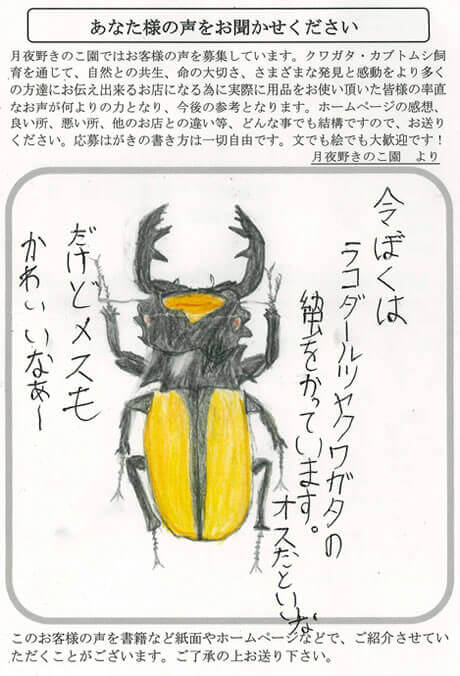 あなた様の声をお聞かせください
月夜野きのこ園ではお客様の声を募集しています。クワガタ・カブトムシ飼
育を通じて、自然との共生、命の大切さ、さまざまな発見と感動をより多く
の方達にお伝え出来るお店になる為に実際に用品をお使い頂いた皆様の率直
なお声が何よりの力となり、今後の参考となります。ホームページの感想、
良い所、悪い所、他のお店との違い等、どんな事でも結構ですので、お送り
ください。応募はがきの書き方は一切自由です。文でも絵でも大歓迎です！
月夜野きのこ園　より
今ぼくは
ラコダールツヤクワガタの
幼虫をかっています。
オスだといいな
だけどメスも
かわいいなぁ〜
このお客様の声を書籍など紙面やホームページなどで、ご紹介させてい
ただくことがございます。ご了承の上お送り下さい。